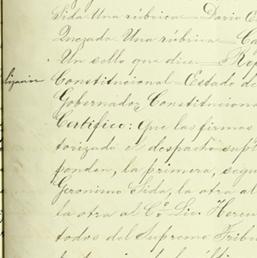 Sida Una rúbrica — Dario
Quezada Una rúbrica —
Un sello que dice — Rep
lización
Constitucional Estado de
Gobernador Constituciona
Certifico: Que las firmas
torizado el despacho supl
ponden, la primera, segu
Geronimo Sida, la otra al
la otra al Cº Lic.
todos del Supremo Tribu